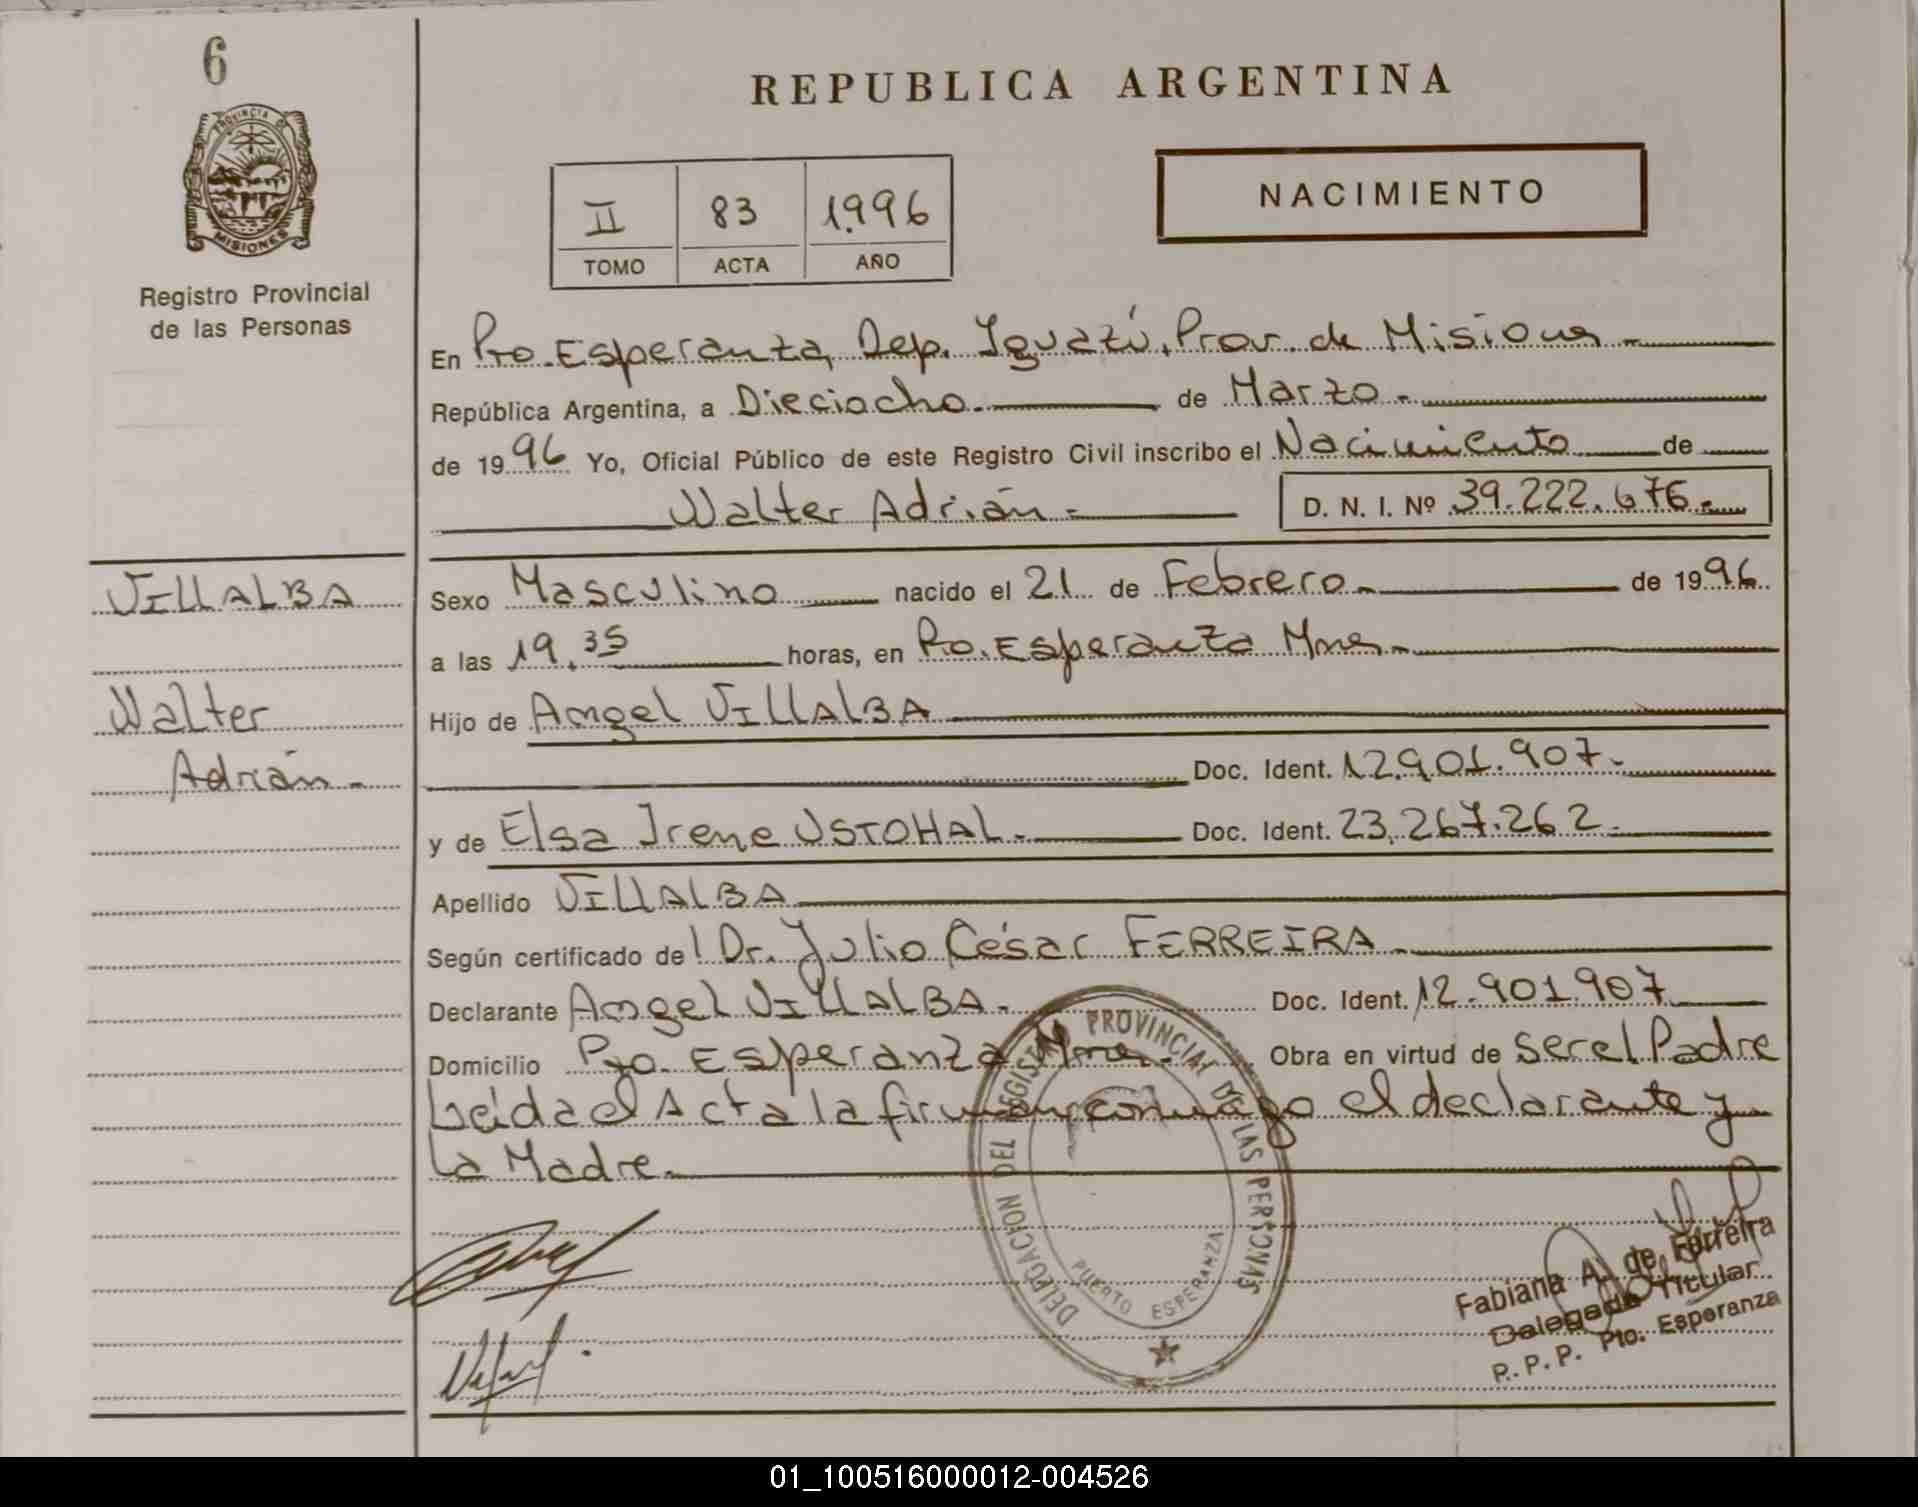 6
PROVINCIA DE
MISIONES
Registro Provincial
de las Personas
REPUBLICA ARGENTINA
II 83 1.996
TOMO ACTA AÑO
NACIMIENTO
En Pto. Esperanza, Dep. Iguazú, Prov. de Misiones
República Argentina, a Dieciocho. de Marzo.
de 1996 Yo, Oficial Público de este Registro Civil inscribo el Nacimiento de
Walter Adrián.- D. N. I. Nº 39.222.676.-
VILLALBA
Walter
Adrián.-
Sexo Masculino nacido el 21 de Febrero.- de 1996
a las 19.35 horas, en Pto. Esperanza Mnes.-
Hijo de Angel VILLALBA
Doc. Ident. 12.901.907.-
y de Elsa Irene USTOHAL.- Doc. Ident. 23.267.262.-
Apellido VILLALBA
Según certificado del Dr. Julio César FERREIRA.-
Declarante Angel VILLALBA.- Doc. Ident. 12.901.907
Domicilio Pto. Esperanza Mnes.- Obra en virtud de ser el Padre
Leída el Acta la firman conmigo el declarante y
La Madre.-
DELEGACION DEL REGISTRO PROVINCIAL DE LAS PERSONAS
PUERTO ESPERANZA
Fabiana A. de Ferreira
Delegada Titular
R.P.P. Pto. Esperanza
01_100516000012-004526